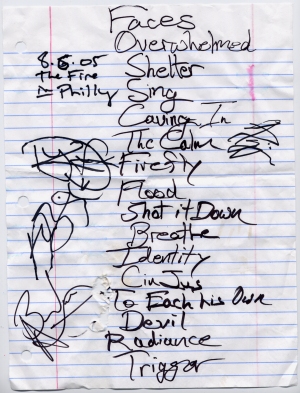 Faces
Overwhelmed
8.5.05
The Fire
Philly
Shelter
Sing
Caving In
The Calm
Firefly
Flood
Shot it Down
Breathe
Identity
Cin Jus
To Each his Own
Devil
Radiance
Trigger